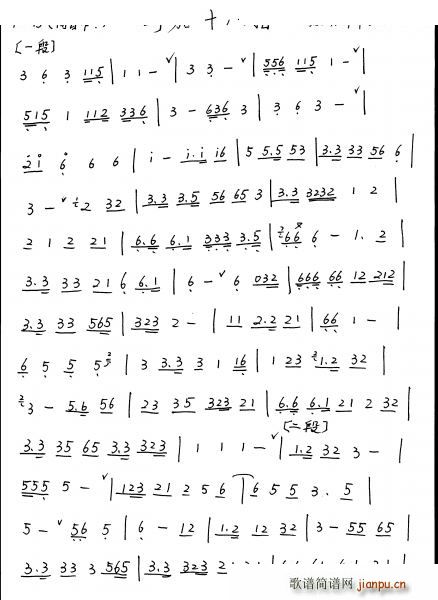 〔一段〕
3 6 3 115 | 1 1 - ∨ | 3 3 - ∨ | 556 115 1 - ∨ |
515 1 112 336 | 3 - 636 3 | 3 6 3 - ∨ |
2i 6 6 6 | i - i.i i6 | 5 5.5 53 | 3.3 33 56 6 |
3 - ∨ 2 32 | 3.3 3.5 56 65 3 | 3.3 3232 1 2 |
2 1 2 21 | 6.6 6.1 333 3.5 | 66 6 - 1. 2 |
3.3 33 21 6 6.1 | 6 - ∨ 6 032 | 666 66 12 212 |
3.3 33 565 | 323 2 - | 11 2.2 21 | 66 1 - |
6 5 5 5 | 3 3.3 3 1 16 | 1 23 1.2 32 |
3 - 5.6 56 | 23 35 323 21 | 6.6 6.1 21 2 32 |
〔二段〕
3.3 35 65 3.3 323 | 1 1 1 - ∨ | 1.2 32 3 - |
555 5 - ∨ | 123 21 2 5 6 | 6 5 5 3. 5 |
5 - ∨ 56 5 | 6 - 12 | 1.2 12 32 | 3 - 55 65 |
3.3 33 3 565 | 3.3 323 2
歌谱简谱网
jianpu.cn